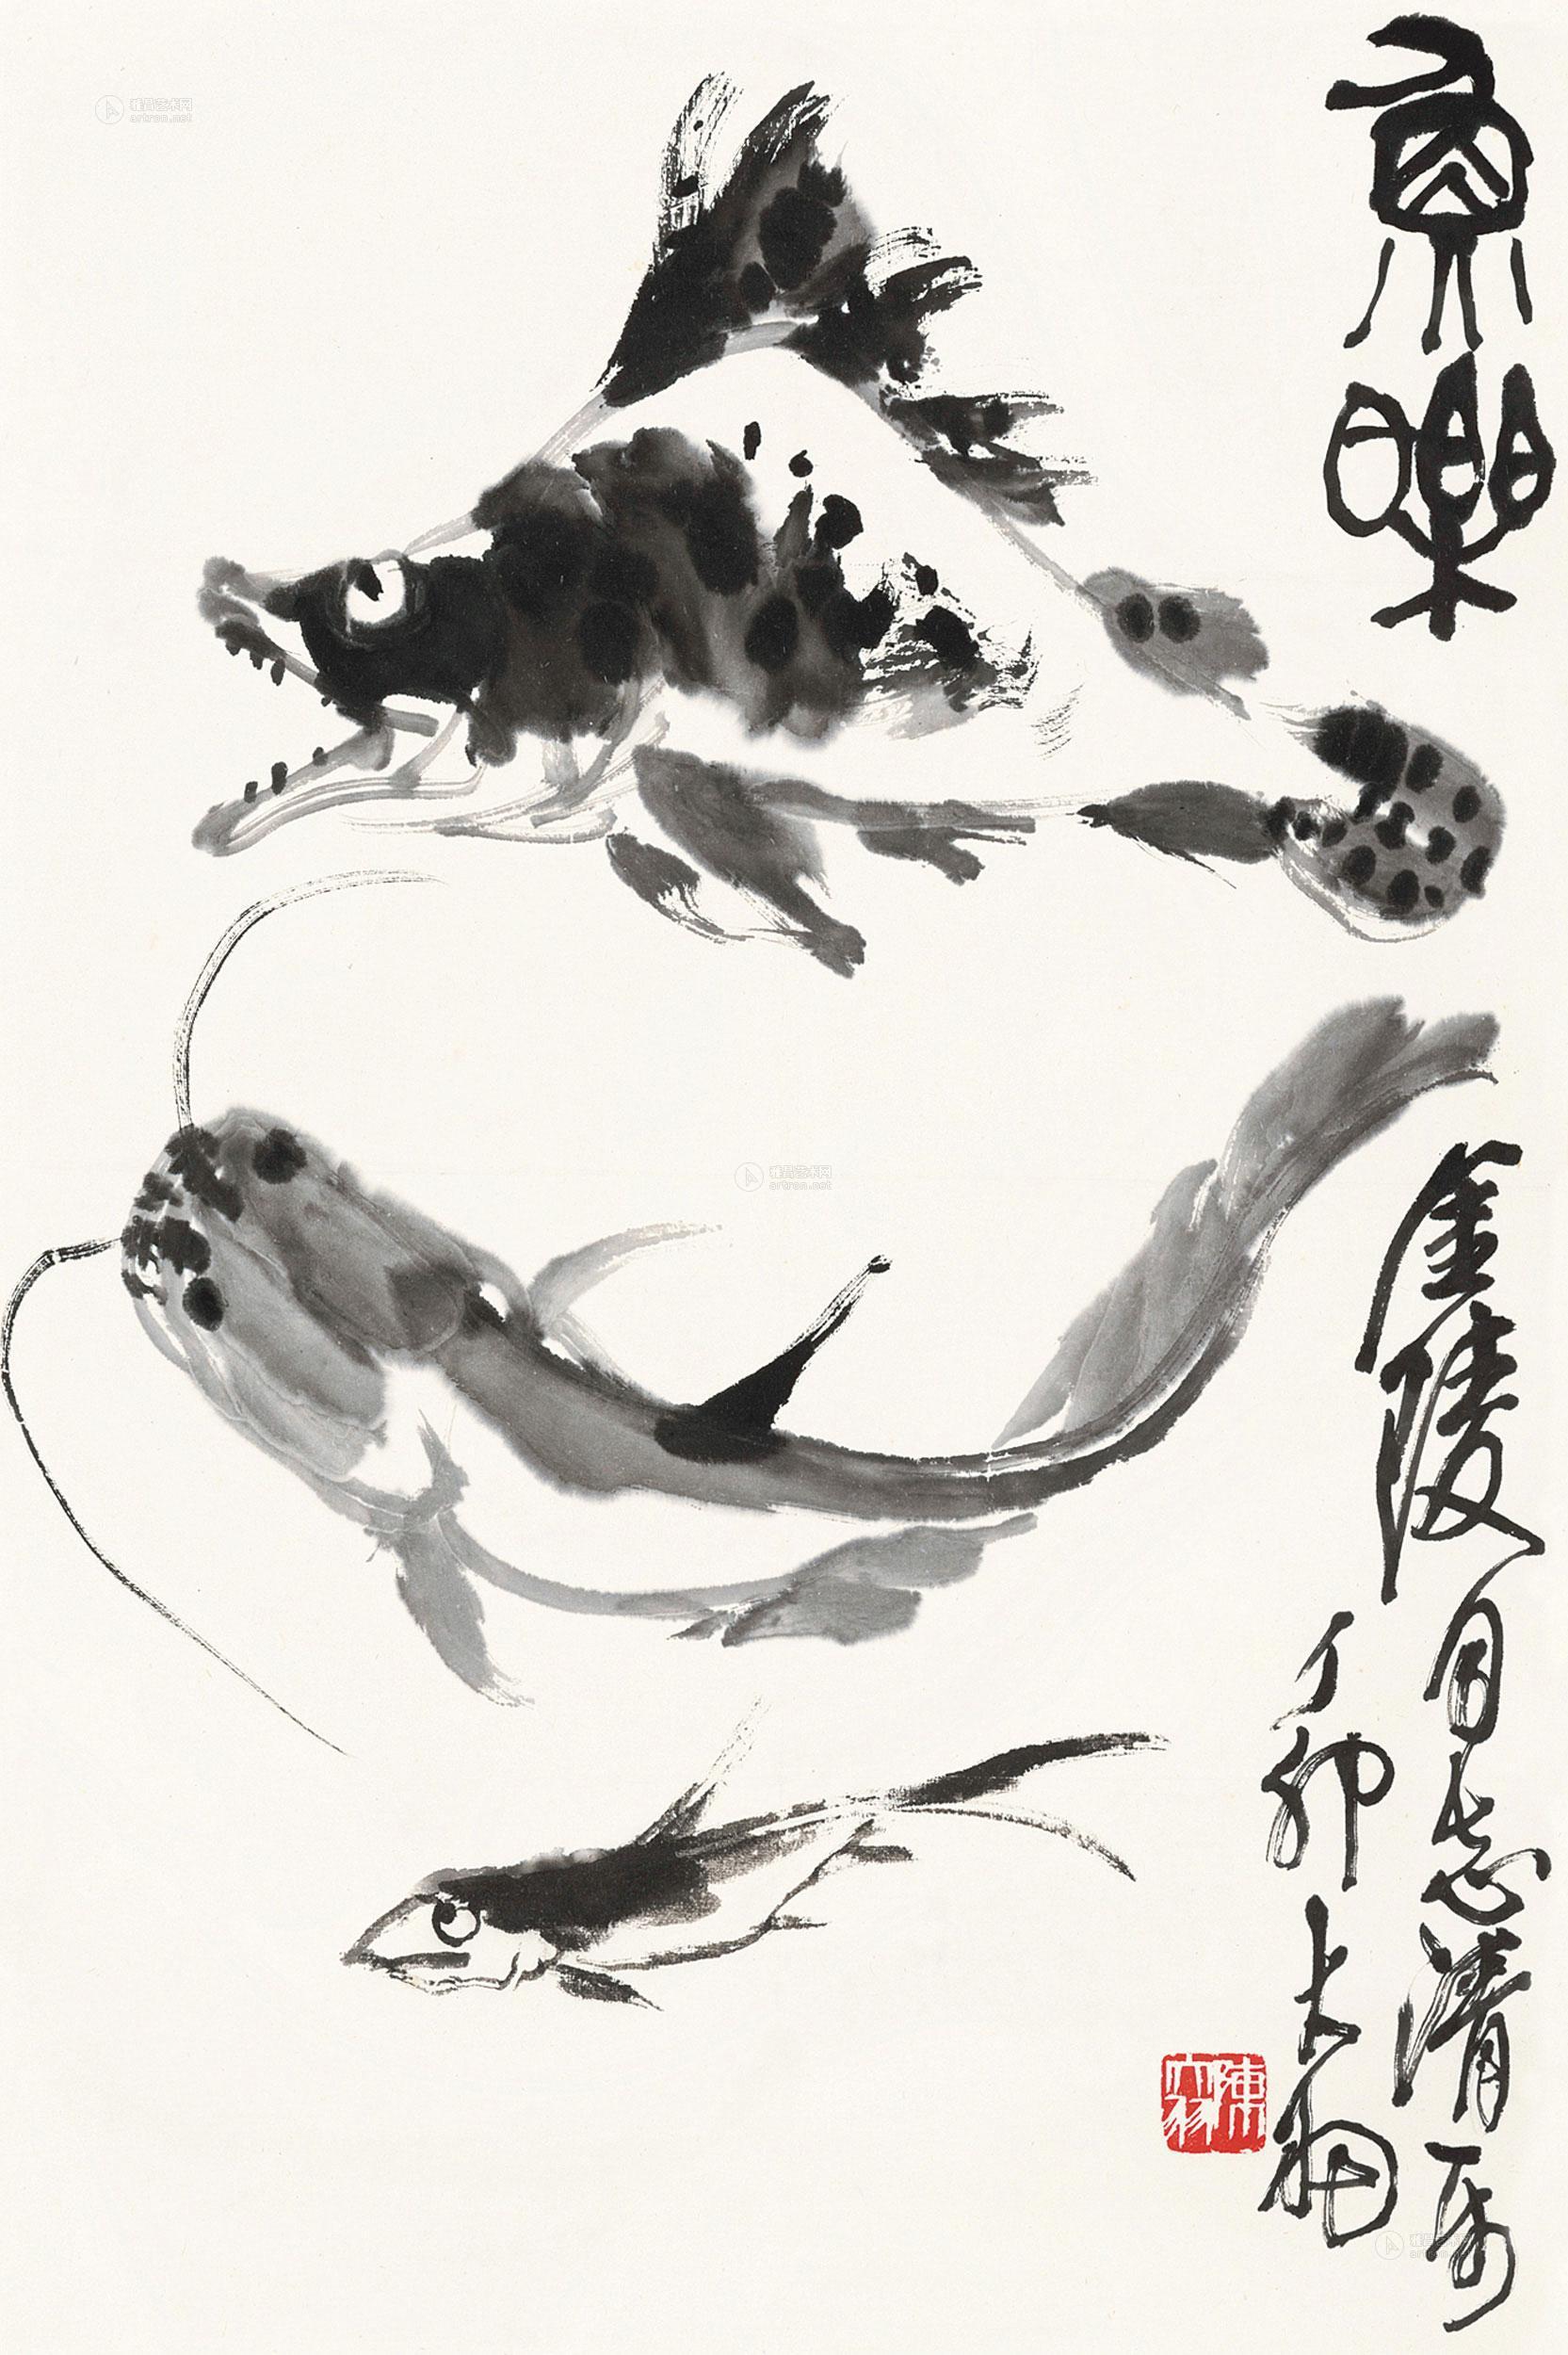 魚樂
金陵
清
丁卯大羽
陳大羽
雅昌艺术网
artron.net
雅昌艺术网
artron.net
雅昌艺术网
artron.net